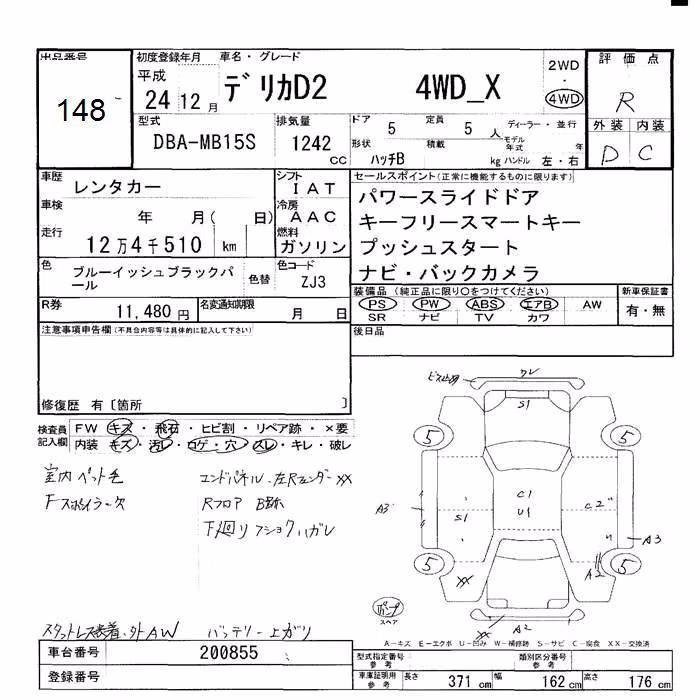 出品番号
148
初度登録年月
平成
24 12 月
車名・グレード
デリカD2 4WD_X
2WD
・
4WD
評価点
R
外装 内装
D C
型式
DBA-MB15S
排気量
1242
CC
ドア 5
定員 5 人
ディーラー・並行
形状
ハッチB
積載
kg
モデル年式 年
ハンドル 左・右
車歴
レンタカー
シフト
IAT
車検
年 月( 日)
冷房
AAC
走行
12万4千510 km
燃料
ガソリン
色
ブルーイッシュブラックパール
色替
色コード
ZJ3
R券
11,480 円
名変通知期限
月 日
セールスポイント(正常に機能するものに限ります)
パワースライドドア
キーフリースマートキー
プッシュスタート
ナビ・バックカメラ
装備品 (純正品に限り○をつけてください)
PS PW ABS エアB AW
SR ナビ TV カワ
新車保証書
有・無
後日品
注意事項申告欄(不具合内容等は具体的に記入して下さい)
修復歴 有〔箇所 〕
検査員記入欄
FW キズ・飛石・ヒビ割・リペア跡・×要
内装 キズ・汚レ・コゲ・穴・スレ・キレ・破レ
室内ペット毛
Fスポイラー欠
エンドパネル・左Rフェンダー××
Rフロア B跡
下廻りフショクハガレ
スタットレス装着・外AW バッテリー上がり
ワレ
S1
5
5
A3
S1
C1
U1
C2
A3
A2
5
5
××
パンク
スペア
××
A2
A-キズ E-エクボ U-凹み W-補修跡 S-サビ C-腐食 XX-交換済
車台番号
200855
登録番号
型式指定番号
参考
類別区分番号
参考
車庫証明用
参考
長さ 371 cm
幅 162 cm
高さ 176 cm